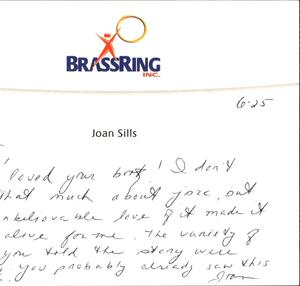 BRASSRING
INC.
6.25
Joan Sills
loved your book! I don't
that much about jazz, but
unbelievable love of it made it
alive for me. The variety of
you told the story were
you probably already saw this
Joan